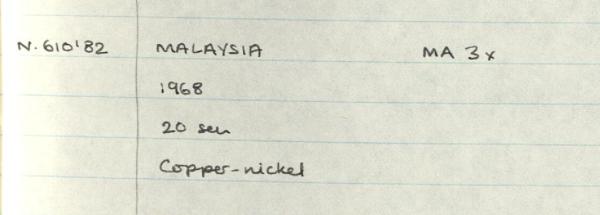 N. 610'82 MALAYSIA MA 3x
1968
20 sen
Copper-nickel